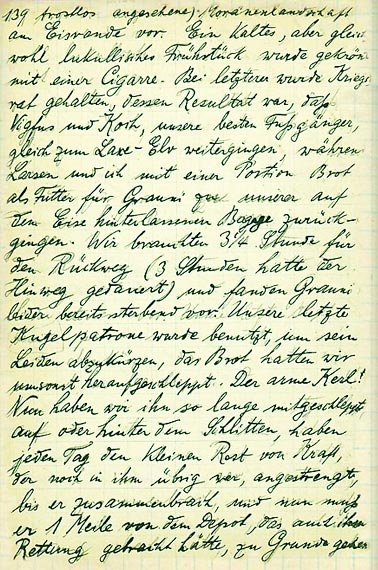 139 trostlos angesehene) Moränenlandschaft
am Eisrande vor. Ein kaltes, aber gleich
wohl lukullisches Frühstück wurde gekrönt
mit einer Cigarre. Bei letzterer wurde Kriegs
rat gehalten, dessen Resultat war, daß
Vigfus und Koch, unsere besten Fußgänger,
gleich zum Laxe-Elv weitergingen, während
Larsen und ich mit einer Portion Brot
als Futter für Grauni zu unserer auf
dem Eise hinterlassenen Bagage zurück-
gingen. Wir brauchten 3/4 Stunde für
den Rückweg (3 Stunden hatte der
Hinweg gedauert) und fanden Grauni
leider bereits sterbend vor. Unsere letzte
Kugelpatrone wurde benutzt, um sein
Leiden abzukürzen, das Brot hatten wir
umsonst heraufgeschleppt. Der arme Kerl!
Nun haben wir ihn so lange mitgeschleppt
auf oder hinter dem Schlitten, haben
jeden Tag den kleinen Rest von Kraft,
der noch in ihm übrig war, angestrengt,
bis er zusammenbrach, und nun muß
er 1 Meile von dem Depot, das auch ihm
Rettung gebracht hätte, zu Grunde gehen